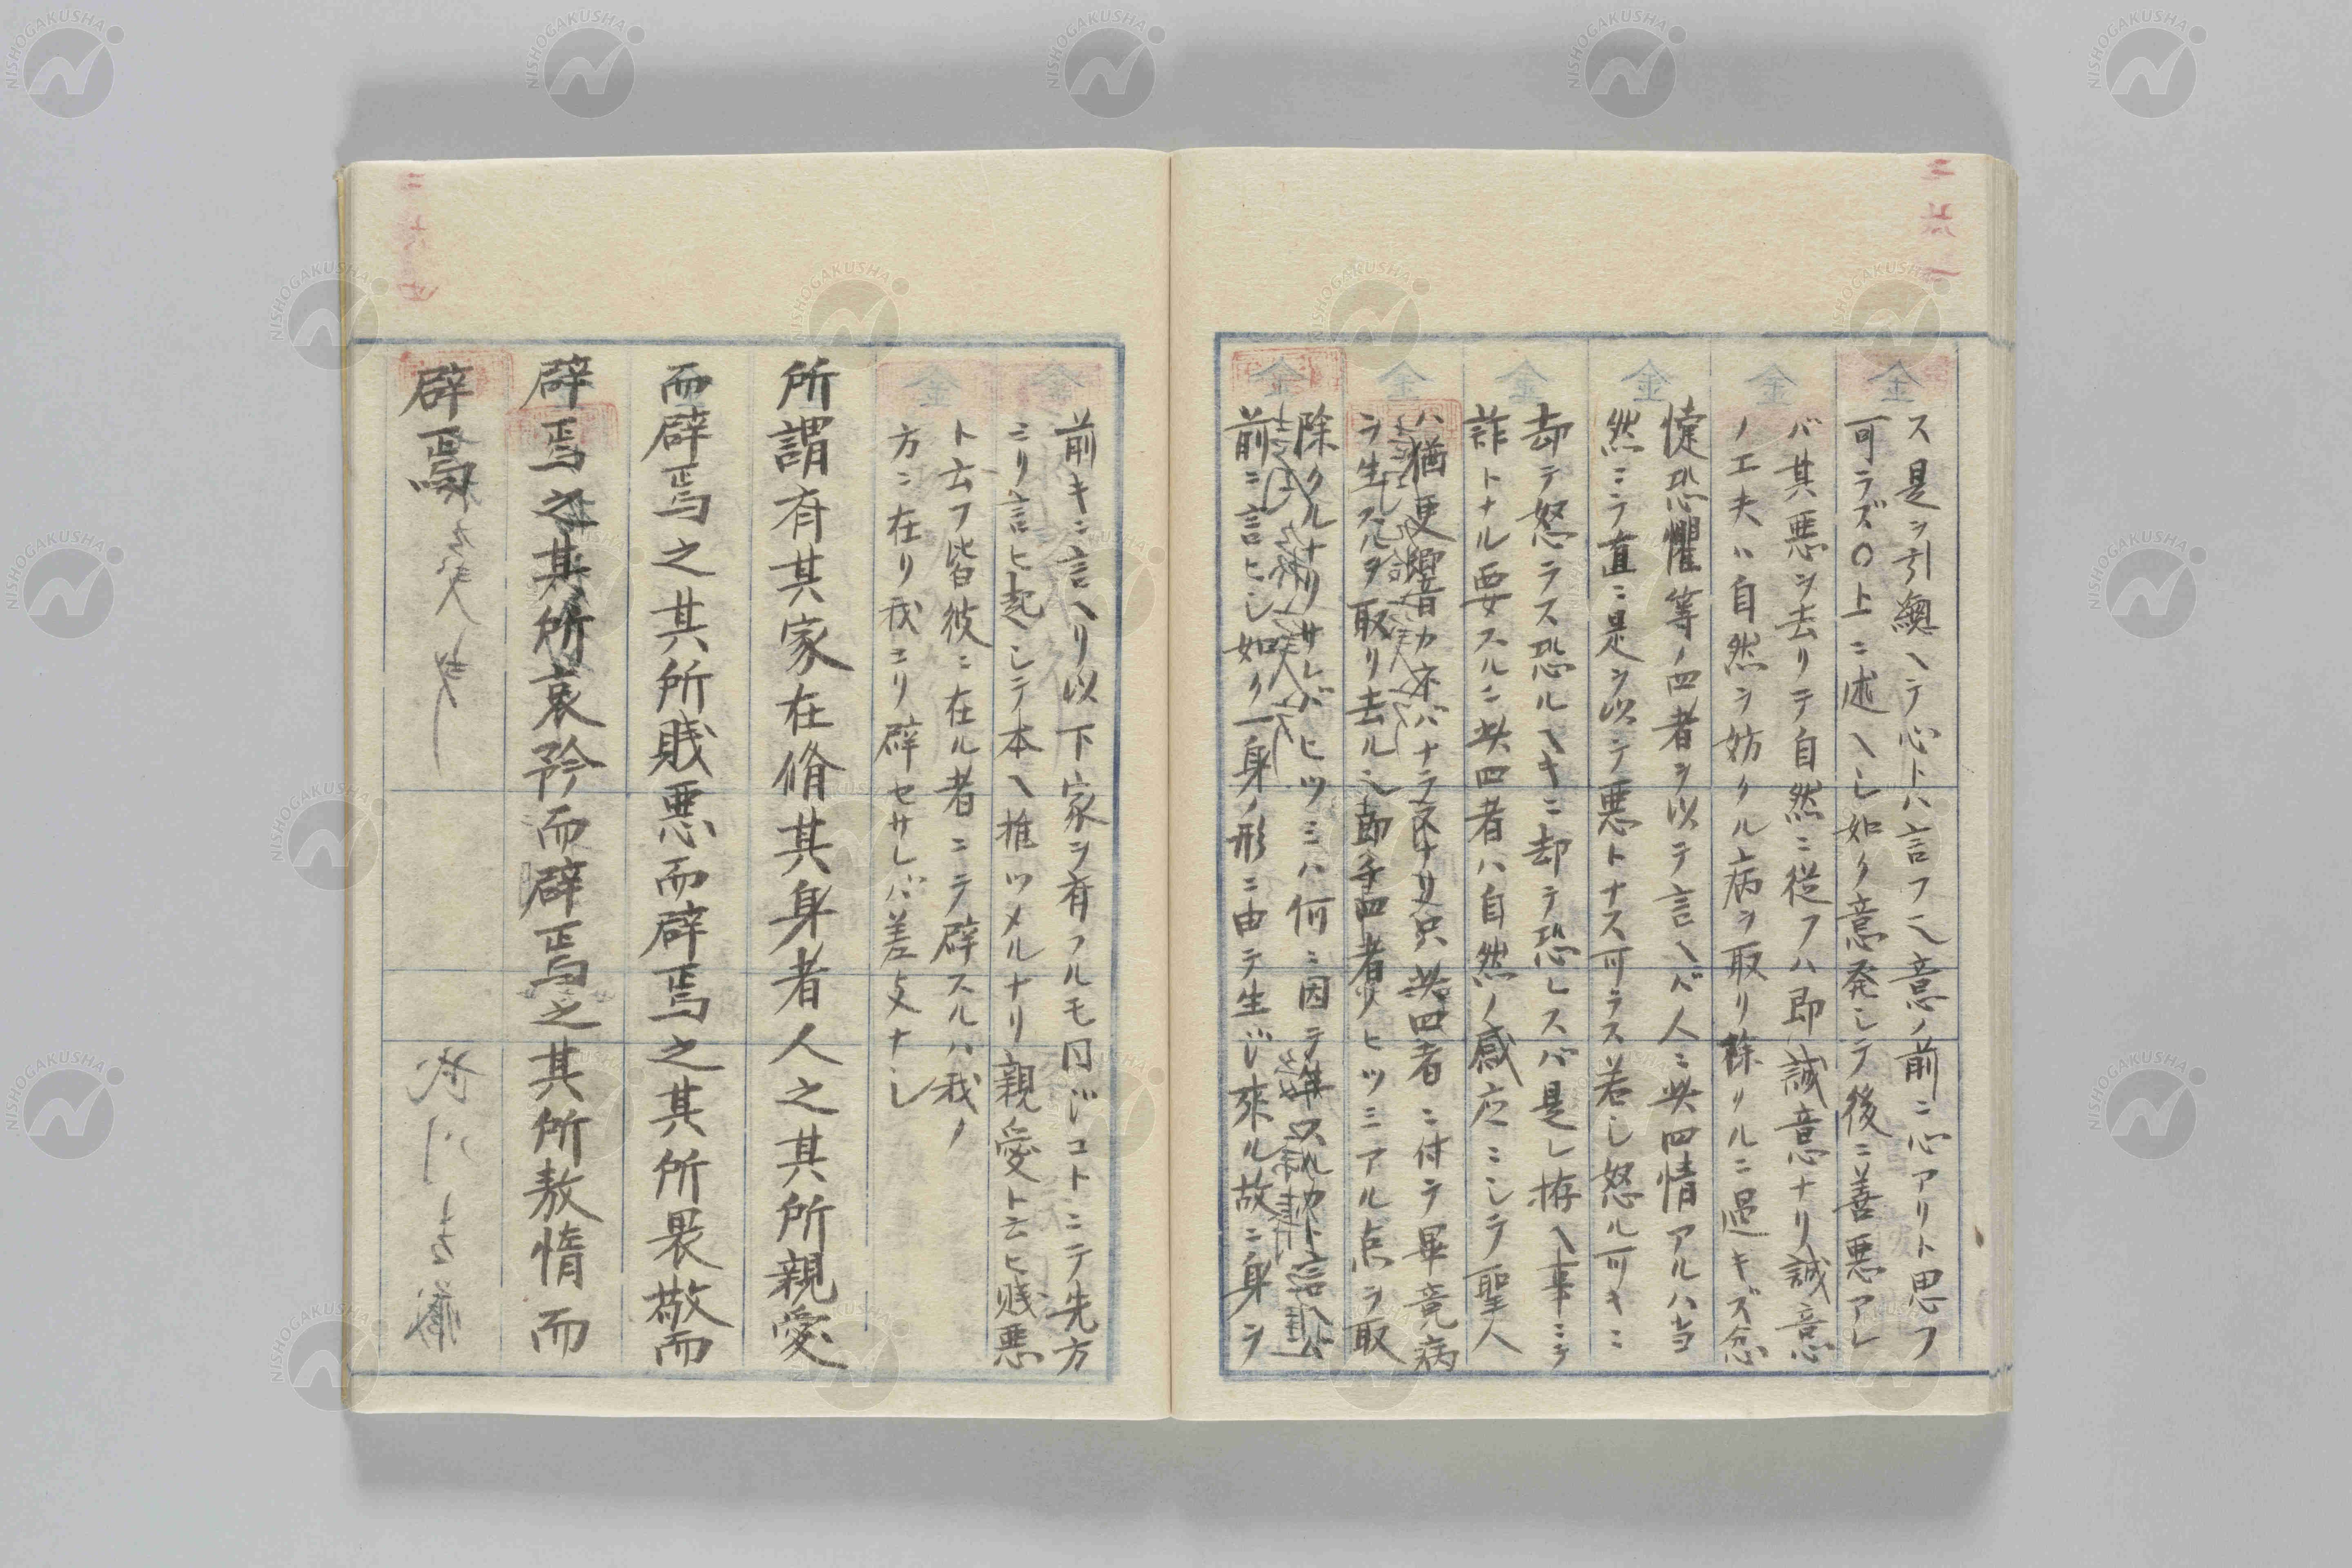 ス是ヲ引纏ヘテ心トハ言フ乀意ノ前ニ心アリト思フ
可ラズ〇上ニ述ヘシ如ク意発シテ後ニ善悪アレ
バ其悪ヲ去リテ自然ニ従フハ即誠意ナリ誠意
ノ工夫ハ自然ヲ妨クル病ヲ取リ除クルニ過キズ忿
懥恐懼等ノ四者ヲ以テ言ヘバ人ニ此四情アルハ当
然ニテ直ニ是ヲ以テ悪トナス可ラス若シ怒ル可キニ
却テ怒ラス恐ルヘキニ却テ恐レスバ是レ拵ヘ事ニテ
詐トナル要スルニ此四者ハ自然ノ感応ニシテ聖人
ハ猶更響カネバナラヌナリ只此四者ニ付テ畢竟病
ヲ生スルヲ取リ去ル乀即チ四者ノヒツミアル点ヲ取
除クルナリサレバヒツミハ何ニ因テ
前ニ言ヒシ如ク一身ノ形ニ由テ生ジ来ル故ニ身ヲ
前キニ言ヘリ以下家ヲ有フルモ同ジコトニテ先方
ヨリ言ヒ起シテ本ヘ推ツメルナリ親愛ト云ヒ賤悪
ト云フ皆彼ニ在ル者ニテ辟スルハ我ノ
方ニ在リ我ヨリ辟セサレバ差支ナシ
所謂斉其家在脩其身者人之其所親愛
而辟焉之其所賤悪而辟焉之其所畏敬而
辟焉之其所哀矜而辟焉之其所敖惰而
辟焉
NISHOGAKUSHA